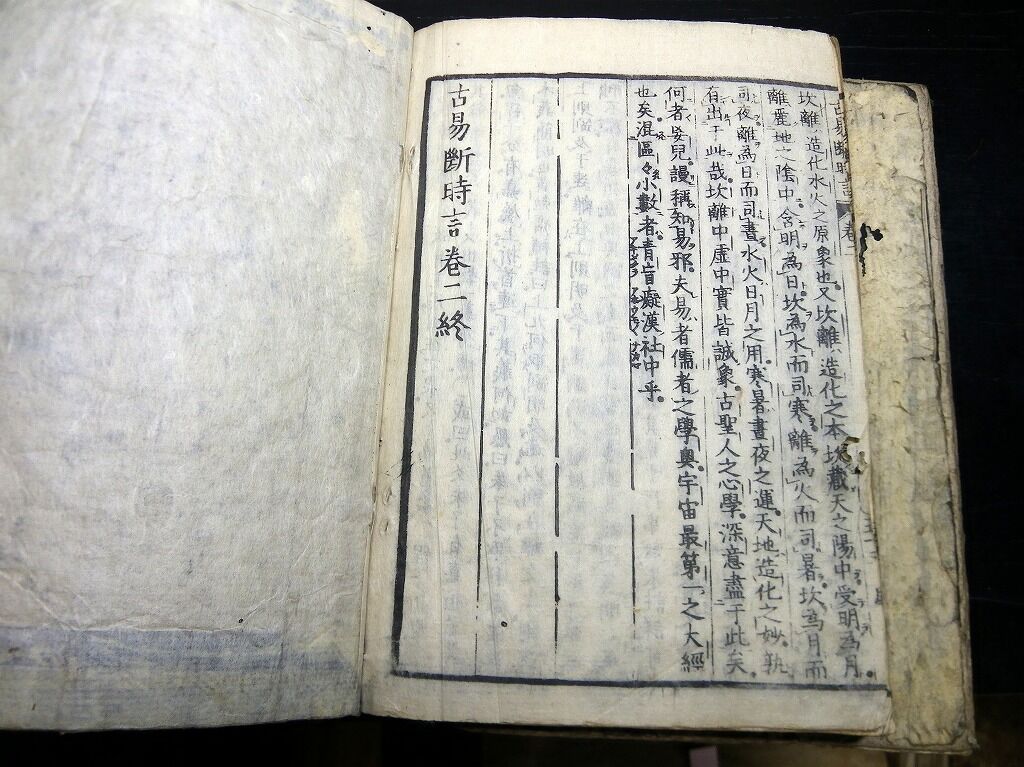 古易斷時言 卷二
坎離造化水火之原象也又坎離造化之本坎藏天之陽中受明為月
離麗地之陰中含明為日坎為水而司寒離為火而司暑坎為月而
司夜離為日而司晝水火日月之用寒暑晝夜之運天地造化之妙孰
有出于此哉坎離中虛中實皆誠象古聖人之心學深意盡于此矣
何者嬰兒謾稱知易邪夫易者儒者之學奧宇宙最第一之大經
也矣混區々小數者青盲癡漢社中乎
古易斷時言卷二終